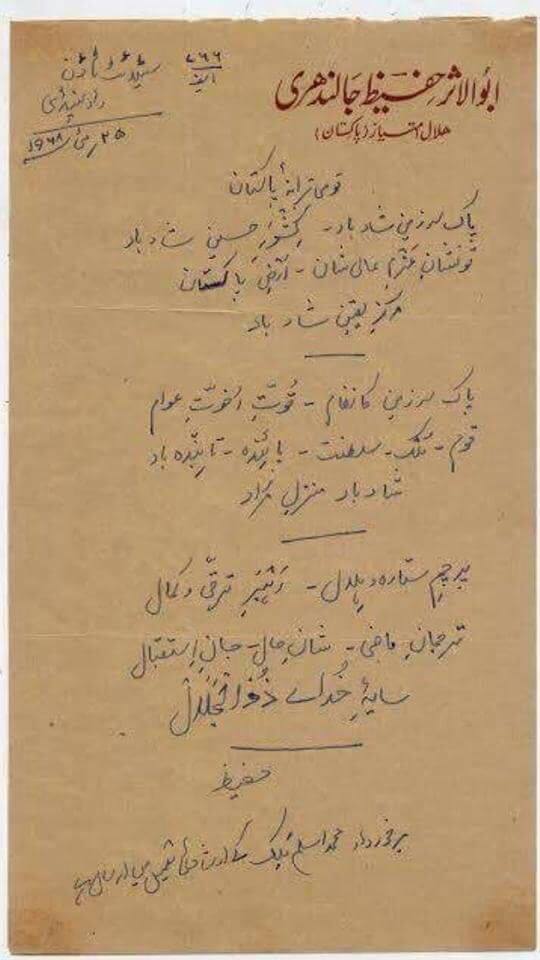 ابوالاثر حفیظ جالندھری
ہلال امتیاز (پاکستان)
۷۸۶
سیٹلائٹ ٹاؤن
راولپنڈی
۲۵ مئی ۱۹۶۸
قومی ترانۂ پاکستان
پاک سرزمین شاد باد - کِشْوَرِ حسین شاد باد
تو نشانِ عَزْمِ عالی شان - ارضِ پاکستان
مرکزِ یقین شاد باد
پاک سرزمین کا نظام - قُوّتِ اُخوّتِ عوام
قوم - مُلک - سلطنت - پائندہ - تابِنْدہ باد
شاد باد منزلِ مُراد
پرچمِ ستارہ و ہِلال - رَہْبَرِ ترقّی و کمال
ترجمانِ ماضی - شانِ حال - جانِ اِستقبال
سایۂِ خُدائے ذُوالْجَلال
حفیظ
برخوردار محمد اسلم ملک کے ارشاد کی تعمیل میں